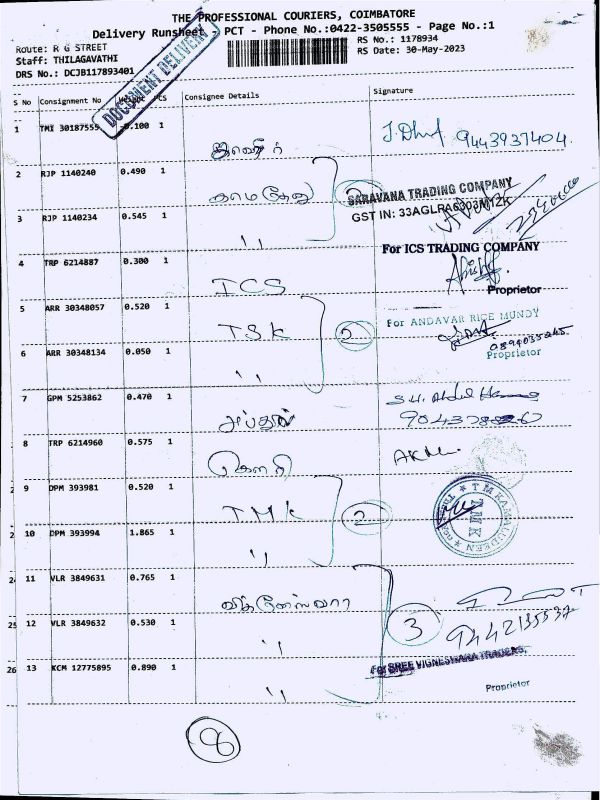 THE PROFESSIONAL COURIERS, COIMBATORE
Delivery Runsheet - PCT - Phone No.:0422-3505555 - Page No.:1
Route: R G STREET
Staff: THILAGAVATHI
DRS No.: DCJB117893401
RS No.: 1178934
RS Date: 30-May-2023
DOCUMENT DELIVERY
S No Consignment No Weight PCS Consignee Details Signature
1 TMI 30187555 0.100 1
9443937404
2 RJP 1140240 0.490 1 காமதேனு
SARAVANA TRADING COMPANY
GST IN: 33AGLRA6303M1ZK
3 RJP 1140234 0.545 1 ,,
For ICS TRADING COMPANY
4 TRP 6214887 0.300 1 ICS
Proprietor
5 ARR 30348057 0.520 1 TSK 2
For ANDAVAR RICE MUNDY
Proprietor
6 ARR 30348134 0.050 1 ,,
7 GPM 5253862 0.470 1
S.H. Abdul
8 TRP 6214960 0.575 1 கௌரி
AKM.
9 DPM 393981 0.520 1 TMK 2
T M KAMALUDEEN
TMK
10 DPM 393994 1.865 1 ,,
11 VLR 3849631 0.765 1 விக்னேஸ்வரா
12 VLR 3849632 0.530 1 ,, 3
9442135537
For SREE VIGNESHWARA TRADERS,
25
26 13 KCM 12775895 0.890 1 ,,
Proprietor
8